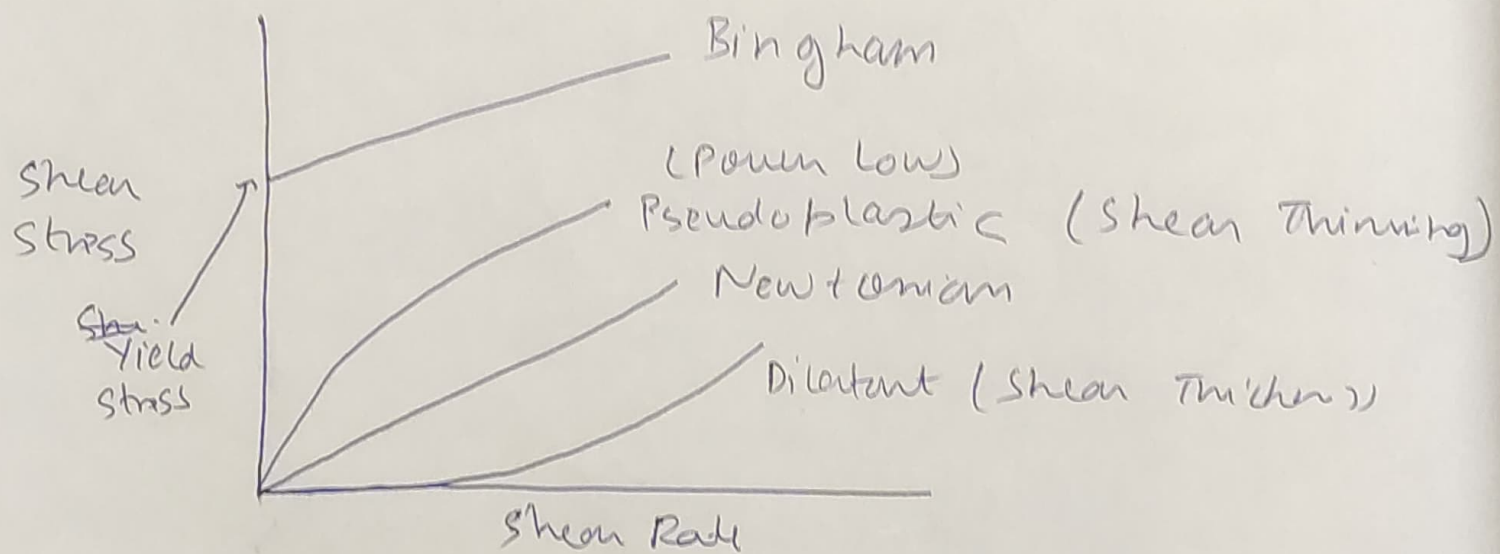 Bingham
(Power Law)
Pseudoplastic (Shear Thinning)
Newtonian
Dilatant (Shear
Shear
Stress
Yield
Stress
Shear Rate